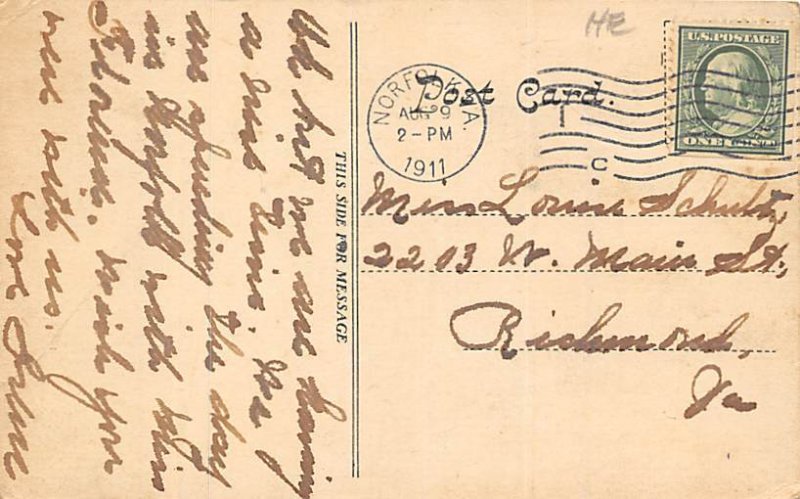 HE
U.S. POSTAGE
Post Card.
NORFOLK, VA.
AUG 9
2-PM
1911
C
Miss Louise Schultz,
2203 W. Main St.,
Richmond,
Va
THIS SIDE FOR MESSAGE
we are having
a nice time. We
are spending the day
in Norfolk with Miss
Florence. Wish you
were with us.
Love